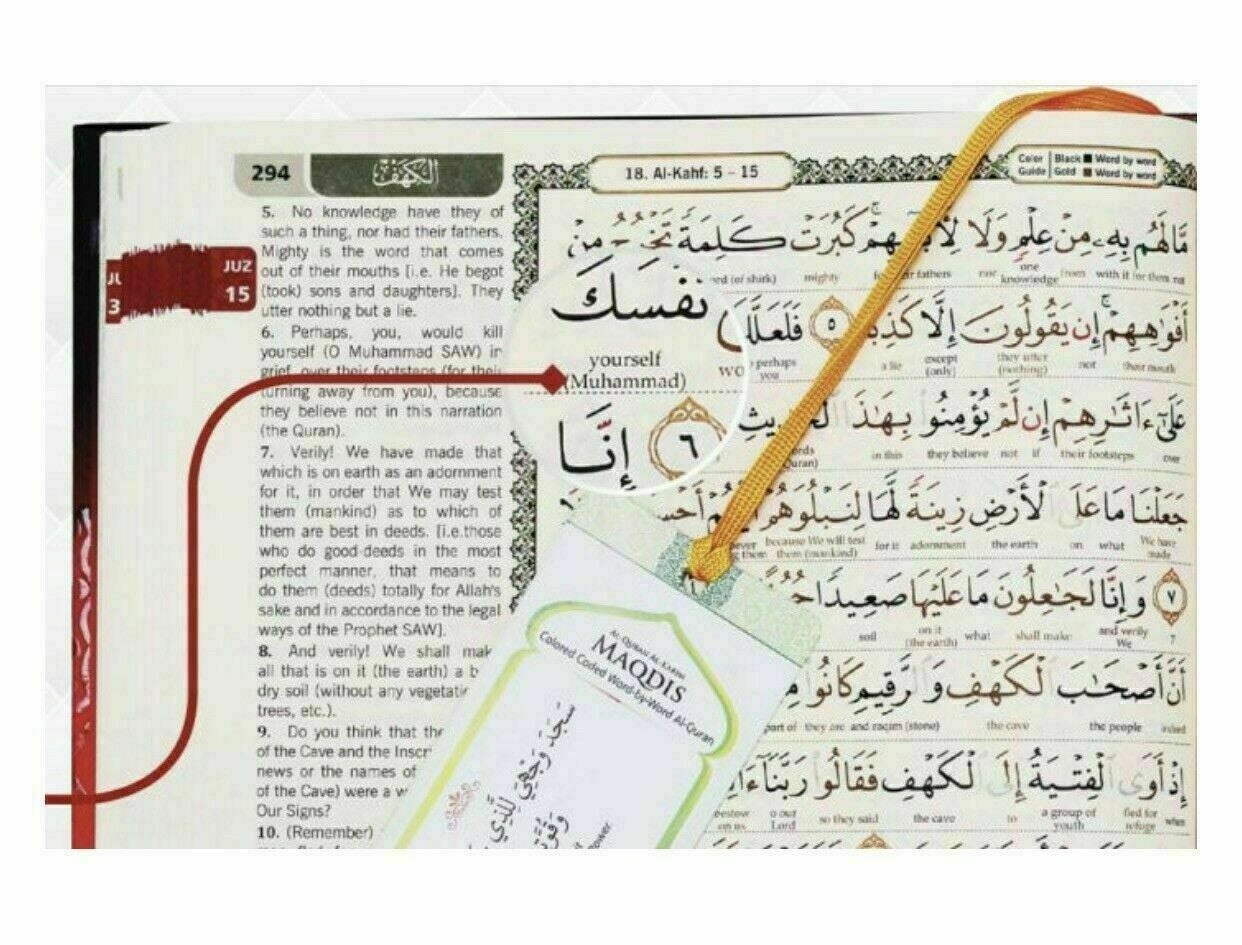 294
الكهف
18. Al-Kahf: 5 - 15
Color Guide
Black Word by word
Gold Word by word
JUZ
15
5. No knowledge have they of
such a thing, nor had their fathers.
Mighty is the word that comes
out of their mouths [i.e. He begot
(took) sons and daughters]. They
utter nothing but a lie.
6. Perhaps, you, would kill
yourself (O Muhammad SAW) in
grief, over their footsteps (for their
turning away from you), because
they believe not in this narration
(the Quran).
7. Verily! We have made that
which is on earth as an adornment
for it, in order that We may test
them (mankind) as to which of
them are best in deeds. [i.e.those
who do good deeds in the most
perfect manner, that means to
do them (deeds) totally for Allah's
sake and in accordance to the legal
ways of the Prophet SAW].
8. And verily! We shall mak
all that is on it (the earth) a b
dry soil (without any vegetatio
trees, etc.).
9. Do you think that the
of the Cave and the Inscri
news or the names of
of the Cave) were a w
Our Signs?
10. (Remember)
مَّالَهُم بِهِۦ مِنْ عِلْمٍ وَلَا كَبُرَتْ كَلِمَةً تَخْرُجُ مِنْ
(of shirk) mighty fathers nor one knowledge from with it for them
أَفْوَٰهِهِمْ إِن يَقُولُونَ إِلَّا كَذِبًا ٥ فَلَعَلَّكَ
perhaps you a lie except (only) they utter (nothing) not their mouth
نَفْسَكَ
yourself
(Muhammad)
عَلَىٰٓ ءَاثَـٰرِهِمْ إِن لَّمْ يُؤْمِنُوا۟ بِهَـٰذَا الْحَدِيثِ
in this they believe not if their footsteps over
٦ إِنَّا
جَعَلْنَا مَا عَلَى الْأَرْضِ زِينَةً لَّهَا لِنَبْلُوَهُمْ أَيُّهُمْ أَحْسَ
because We will test them (mankind) for it adornment the earth on what We have made
٧ وَإِنَّا لَجَـٰعِلُونَ مَا عَلَيْهَا صَعِيدًا
soil on it (the earth) what shall make and verily We 7
أَنَّ أَصْحَـٰبَ الْكَهْفِ وَالرَّقِيمِ كَانُوا۟
part of they are and raqim (stone) the cave the people
إِذْ أَوَى الْفِتْيَةُ إِلَى الْكَهْفِ فَقَالُوا۟ رَبَّنَآ
bestow on us O our Lord so they said the cave to a group of youth fled for refuge when
AL-QURAN AL-KARIM
MAQDIS
Colored Coded Word-by-Word Al-Quran
سَجَدَ وَجْهِيَ لِلَّذِي